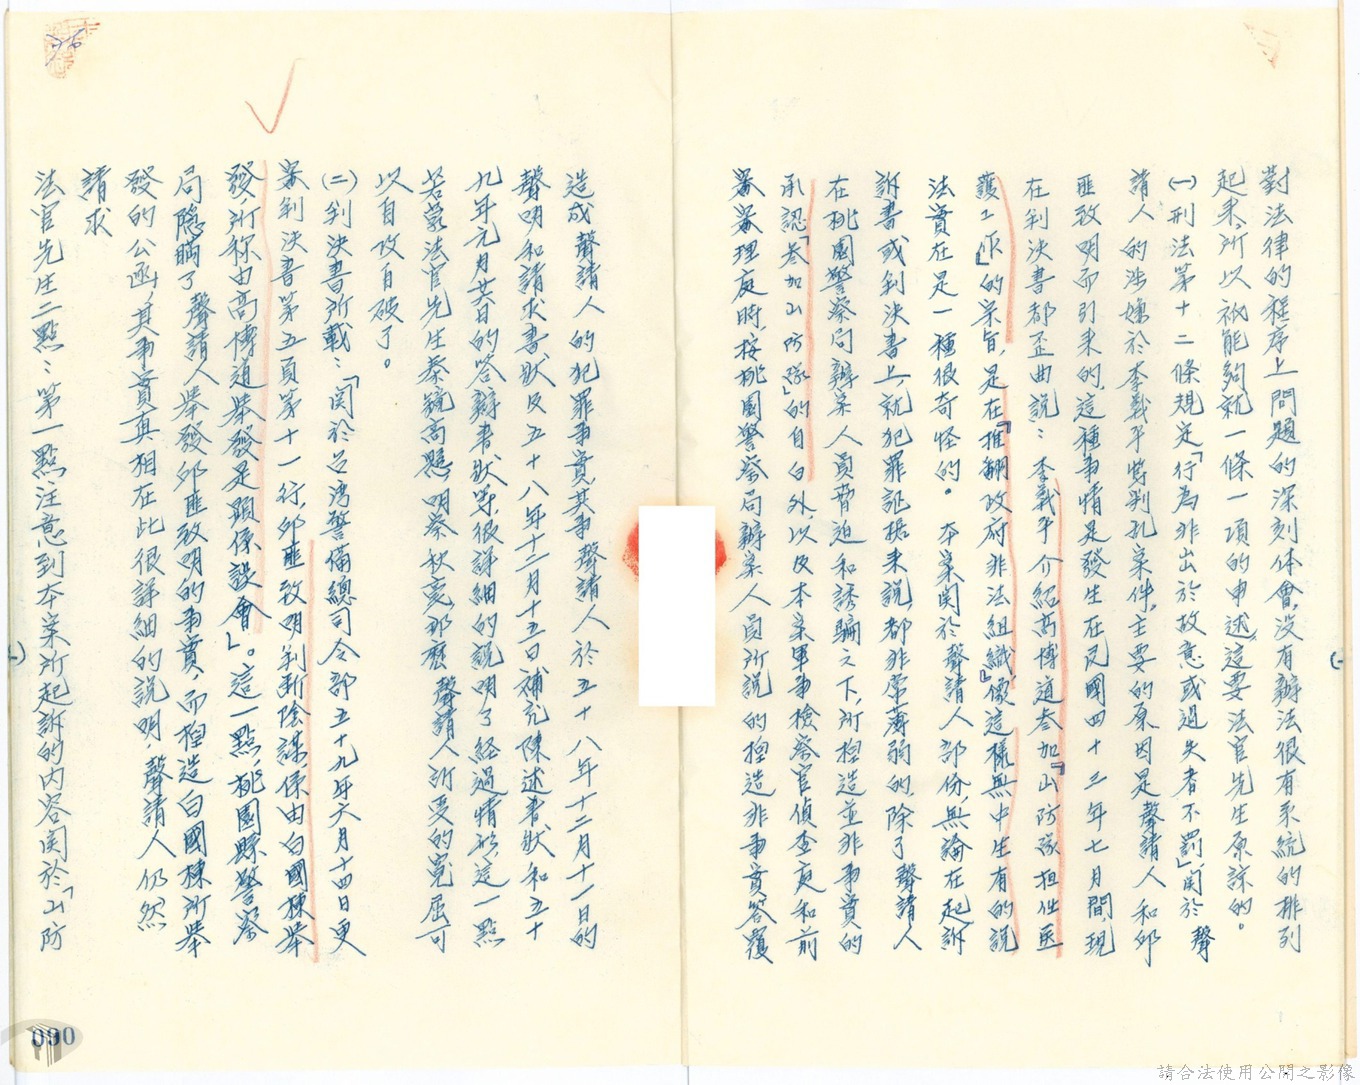 對法律的程序上問題的深刻体會,沒有辦法很有系統的排列
起來,所以祇能夠就一條一項的申述,這要法官先生原諒的。
(一)刑法第十二條規定「行為非出於故意或過失者不罰」関於 聲
請人的涉嫌於李義平特判乱案件,主要的原因是 聲請人和邱
匪致明而引来的,這種事情是發生在民國四十三年七月間,現
在判決書都歪曲說:李義平介紹高博道叁加「山防隊担任医
護工作」的宗旨,是在『推翻政府非法組織』像這樣無中生有的說
法實在是一種很奇怪的。 本案関於 聲請人部份,無論在起訴
訴書或判決書上,就犯罪証据来說,都非常薄弱的,除了 聲請人
在桃園警察局辦案人員脅迫和誘騙之下,所捏造並非事實的
承認「叁加山防隊」的自白外,以及本案軍事檢察官偵查庭和前
審審理庭時按桃園警察局辦案人員所說的捏造非事實答覆
造成 聲請人的犯罪事實,其事 聲請人於五十八年十二月十一日的
聲明和請求書狀及五十八年十二月十五日補充陳述書狀和五十
九年元月廿六日的答辯書狀等,很詳細的說明了經過情形,這一點
若蒙法官先生秦鏡高懸,明察秋毫,那麼 聲請人所受的寃屈可
以自攻自破了。
(二)判決書所載:「関於台湾警備總司令部五十九年六月十四日更
審判決書第五頁第十一行,邱匪致明判斷陰謀係由白國棟舉
發,所称由高博道舉發是顕係誤會」。這一點,桃園縣警察
局隐瞞了 聲請人舉發邱匪致明的事實,而捏造白國棟所舉
發的公函,其事實真相在此很詳細的說明, 聲請人仍然
請求
法官先生二點:第一點注意到本案所起訴的内容関於「山防
090
請合法使用公開之影像